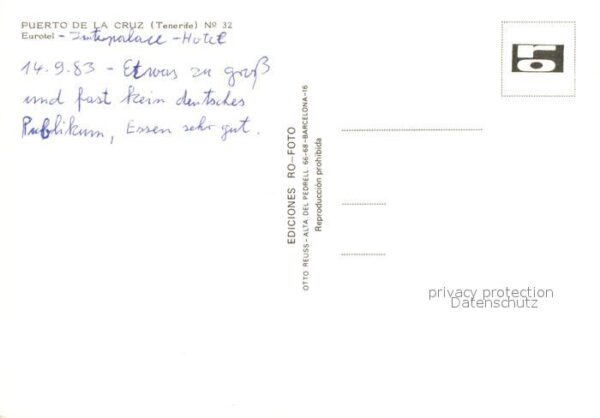 PUERTO DE LA CRUZ (Tenerife) Nº 32
Eurotel - Interpalace - Hotel
14.9.83 - Etwas zu groß
und fast kein deutsches
Publikum, Essen sehr gut.
EDICIONES RO-FOTO
OTTO REUSS - ALTA DEL PEDRELL 66-68 - BARCELONA-16
Reproducción prohibida
ro
privacy protection
Datenschutz